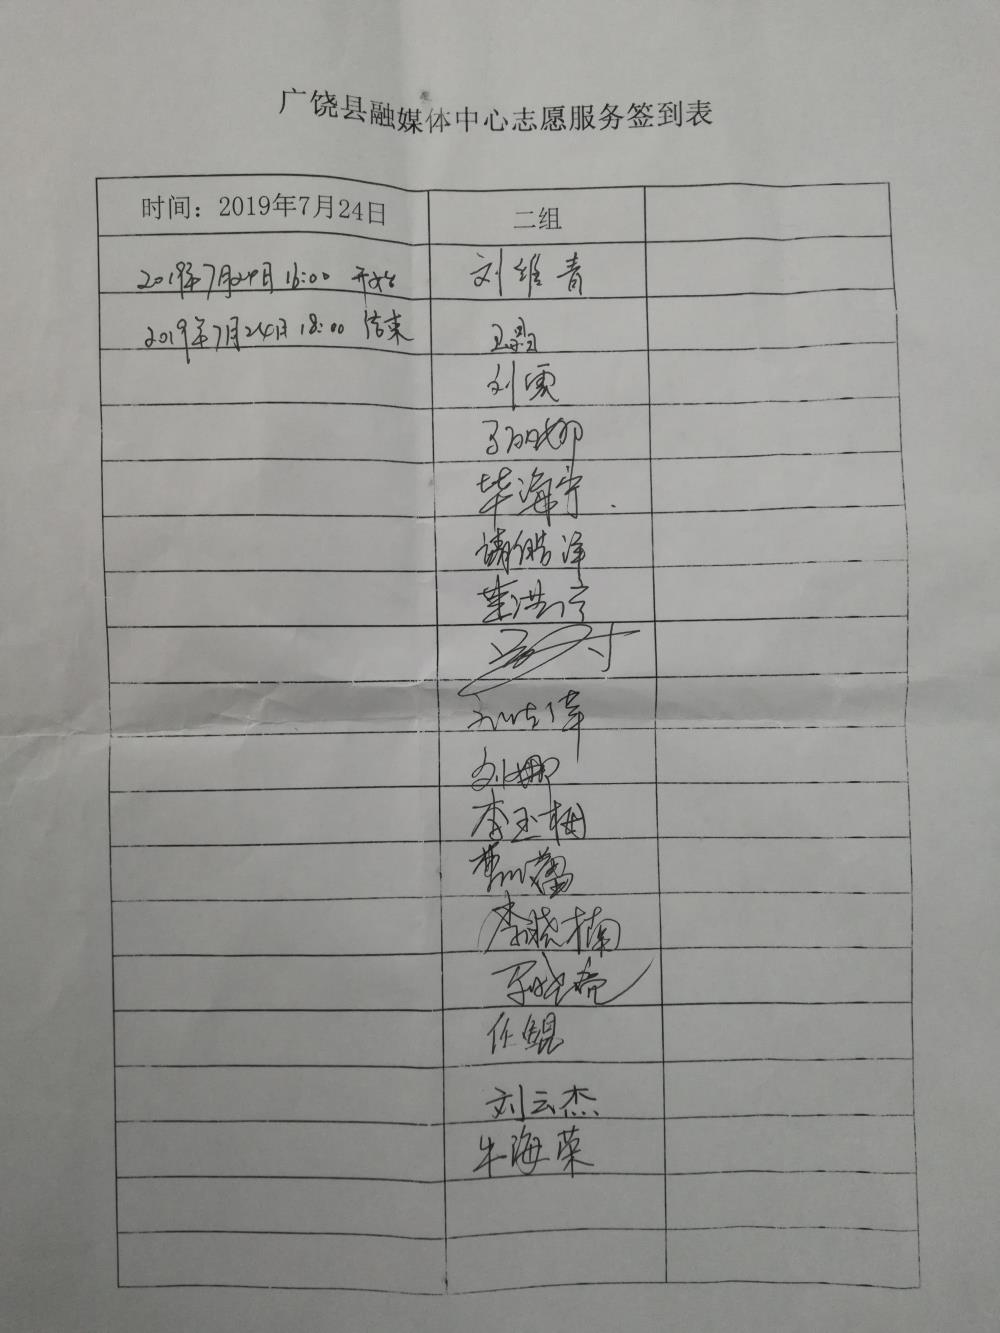 广饶县融媒体中心志愿服务签到表
时间：2019年7月24日 二组
2019年7月24日 16:00 开始 刘维青
2019年7月24日 18:00 结束 王晶
刘雯
马丽娜
毕海宁
董洪广
刘娜
李玉梅
李晓楠
任鲲
刘云杰
牛海荣